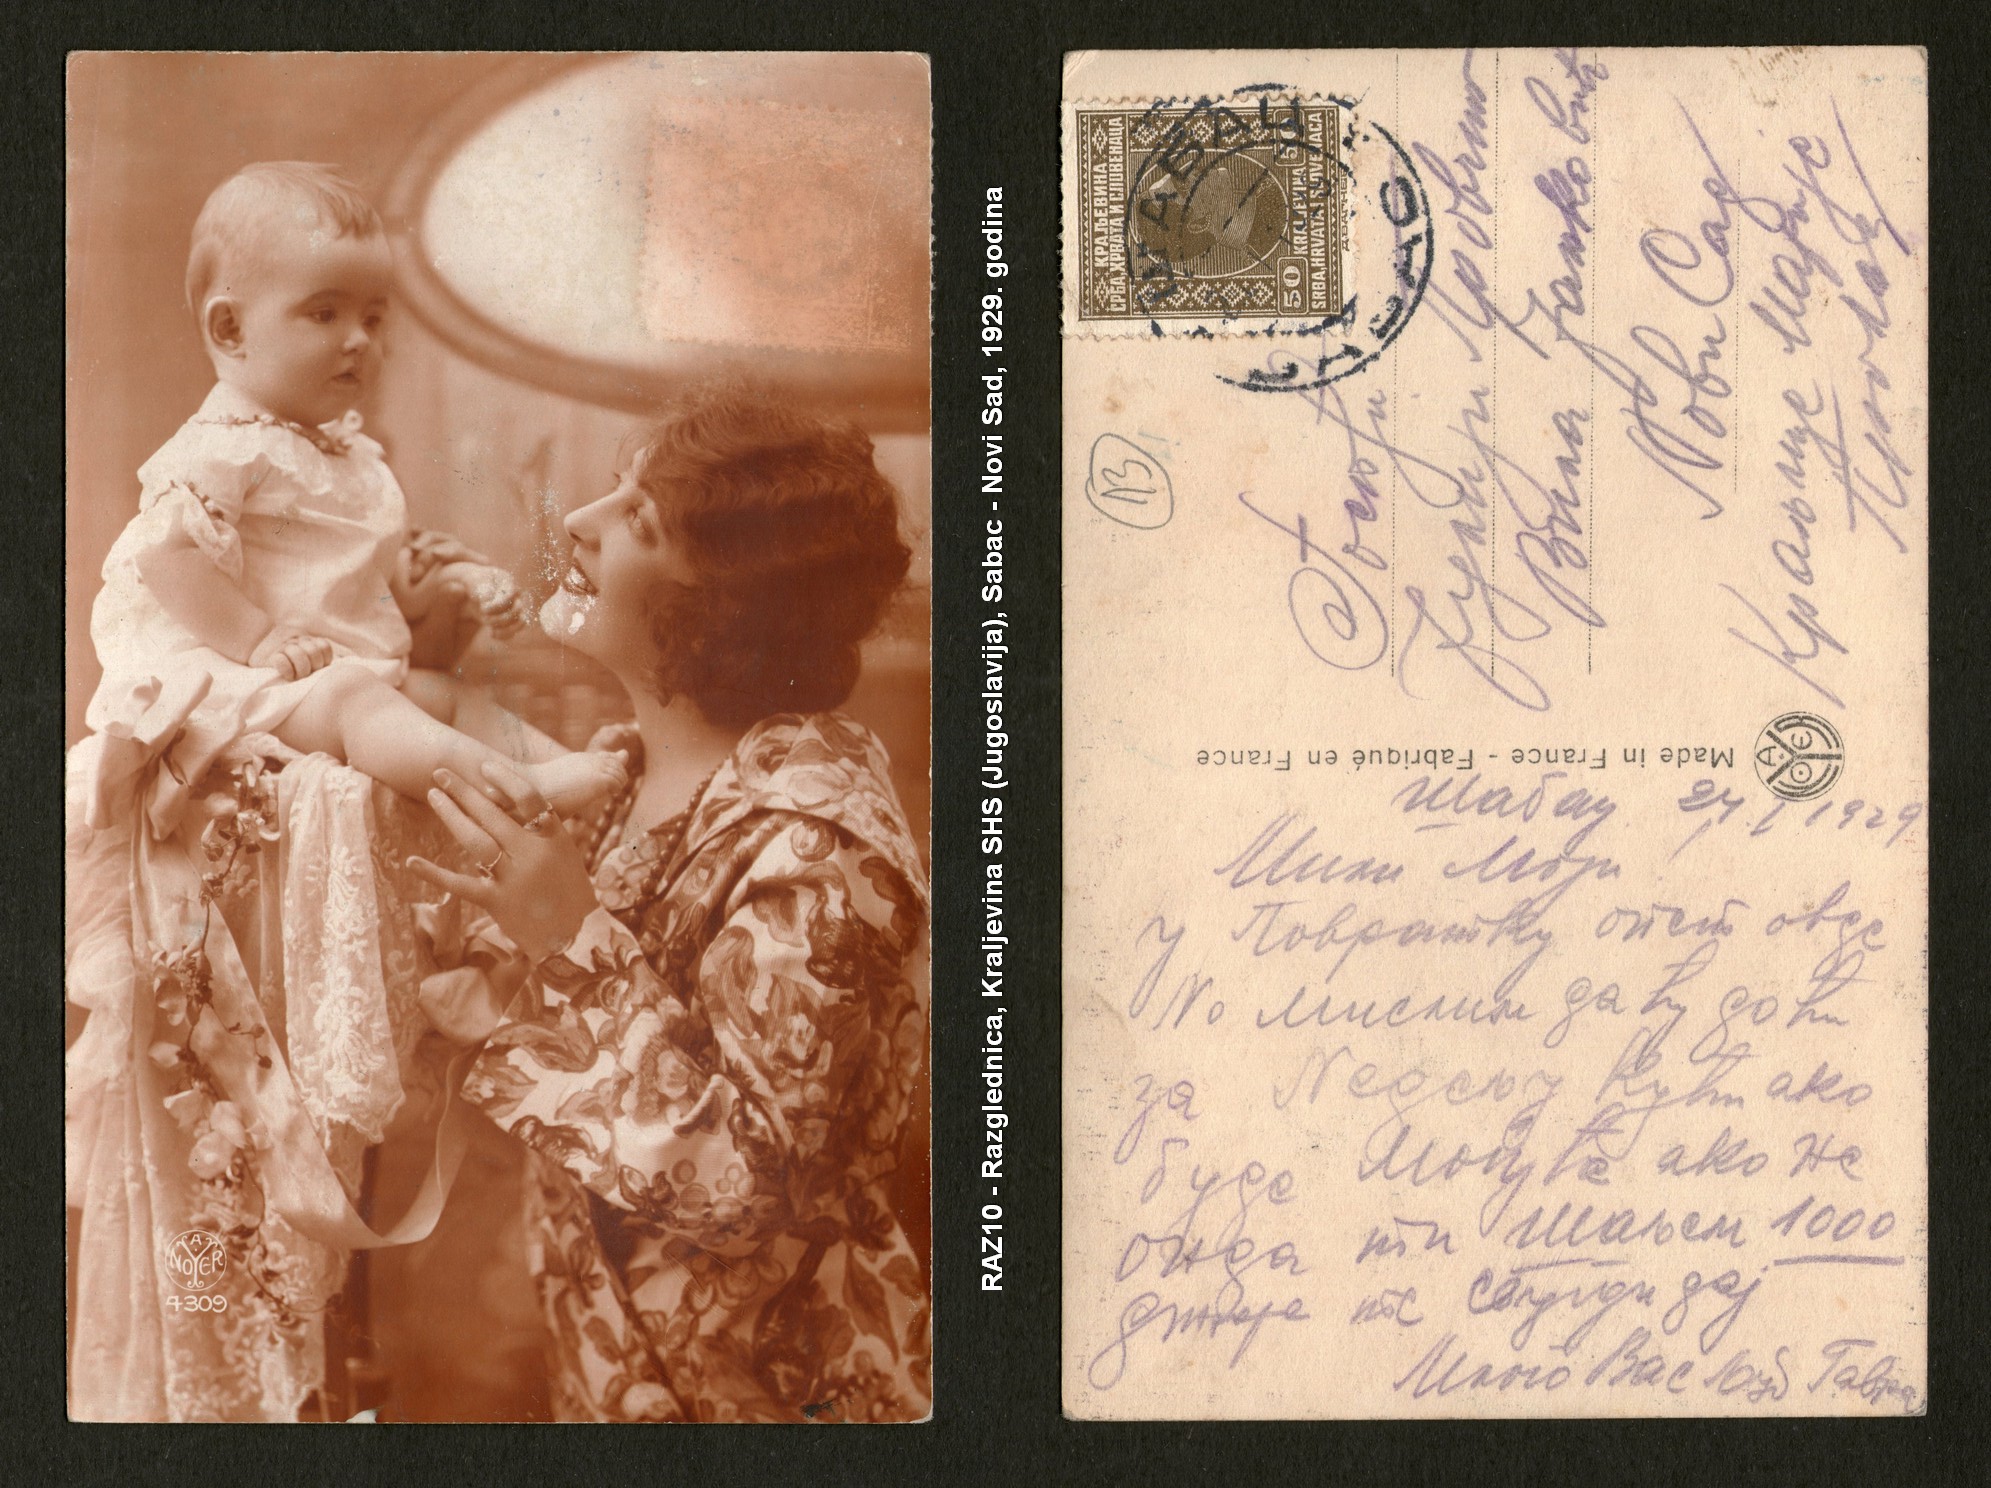 A
NOYER
4309
RAZ10 - Razglednica, Kraljevina SHS (Jugoslavija), Sabac - Novi Sad, 1929. godina
КРАЉЕВИНА
СРБА, ХРВАТА И СЛОВЕНАЦА
KRALJEVINA
SRBA, HRVATA I SLOVENACA
50
50
ШАБАЦ
ŠABAC
13
Госпођи
Вина Јанковић
Нови Сад
Краљице Марије
Made in France - Fabriqué en France
A. NOYER
Шабац 24/I 1929
Мили Моји
у Повратку опет овде
No мислим да ћу доћи
за Недељу кући ако
буде Могуће ако не
онда ти Шаљем 1000
дин
Много Вас Гавра